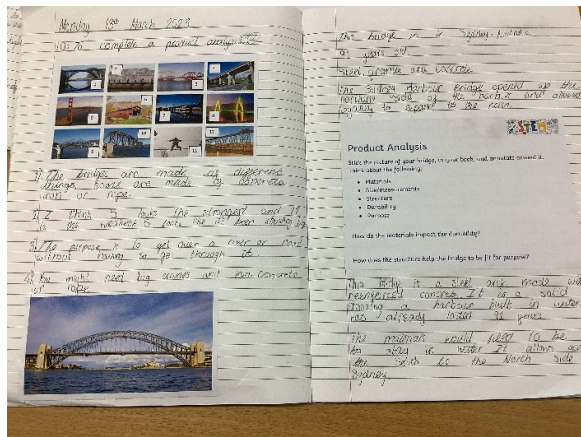 Monday 13th March 2023
to complete a product analysis
1) The bridges are made of different
things some are made of concrete
iron or rope.
2) I think 5 looks the strongest and 11
is the weakest
3) The purpose is to get over a river or road
without having to go through it.
might need big cranes and iron concrete
or rope
This bridge is in Sydney
years old.
Steel, granite and concrete
The Sydney Harbour Bridge opened up the
northern side of the harbor and allowed
to expand to the
STEM
Product Analysis
Stick the picture of your bridge, in your book, and annotate around it.
Think about the following:
• Materials
• Size/measurements
• Structure
• Durability
• Purpose
How do the materials impact the durability?
How does the structure help the bridge to be fit for purpose?
This bridge is a steel arch made with
reinforced concrete. It is a solid
a harbour built on water
has already lasted 91 years.
The materials would need to be
to stay in water It allows
the South to the North side
Sydney